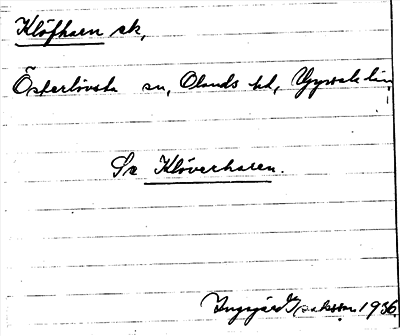 Klöfharn sk,
Österlövsta sn, Olands hd, Uppsala län
Se Klöverharen.
Ingegärd Isaksson 1936.